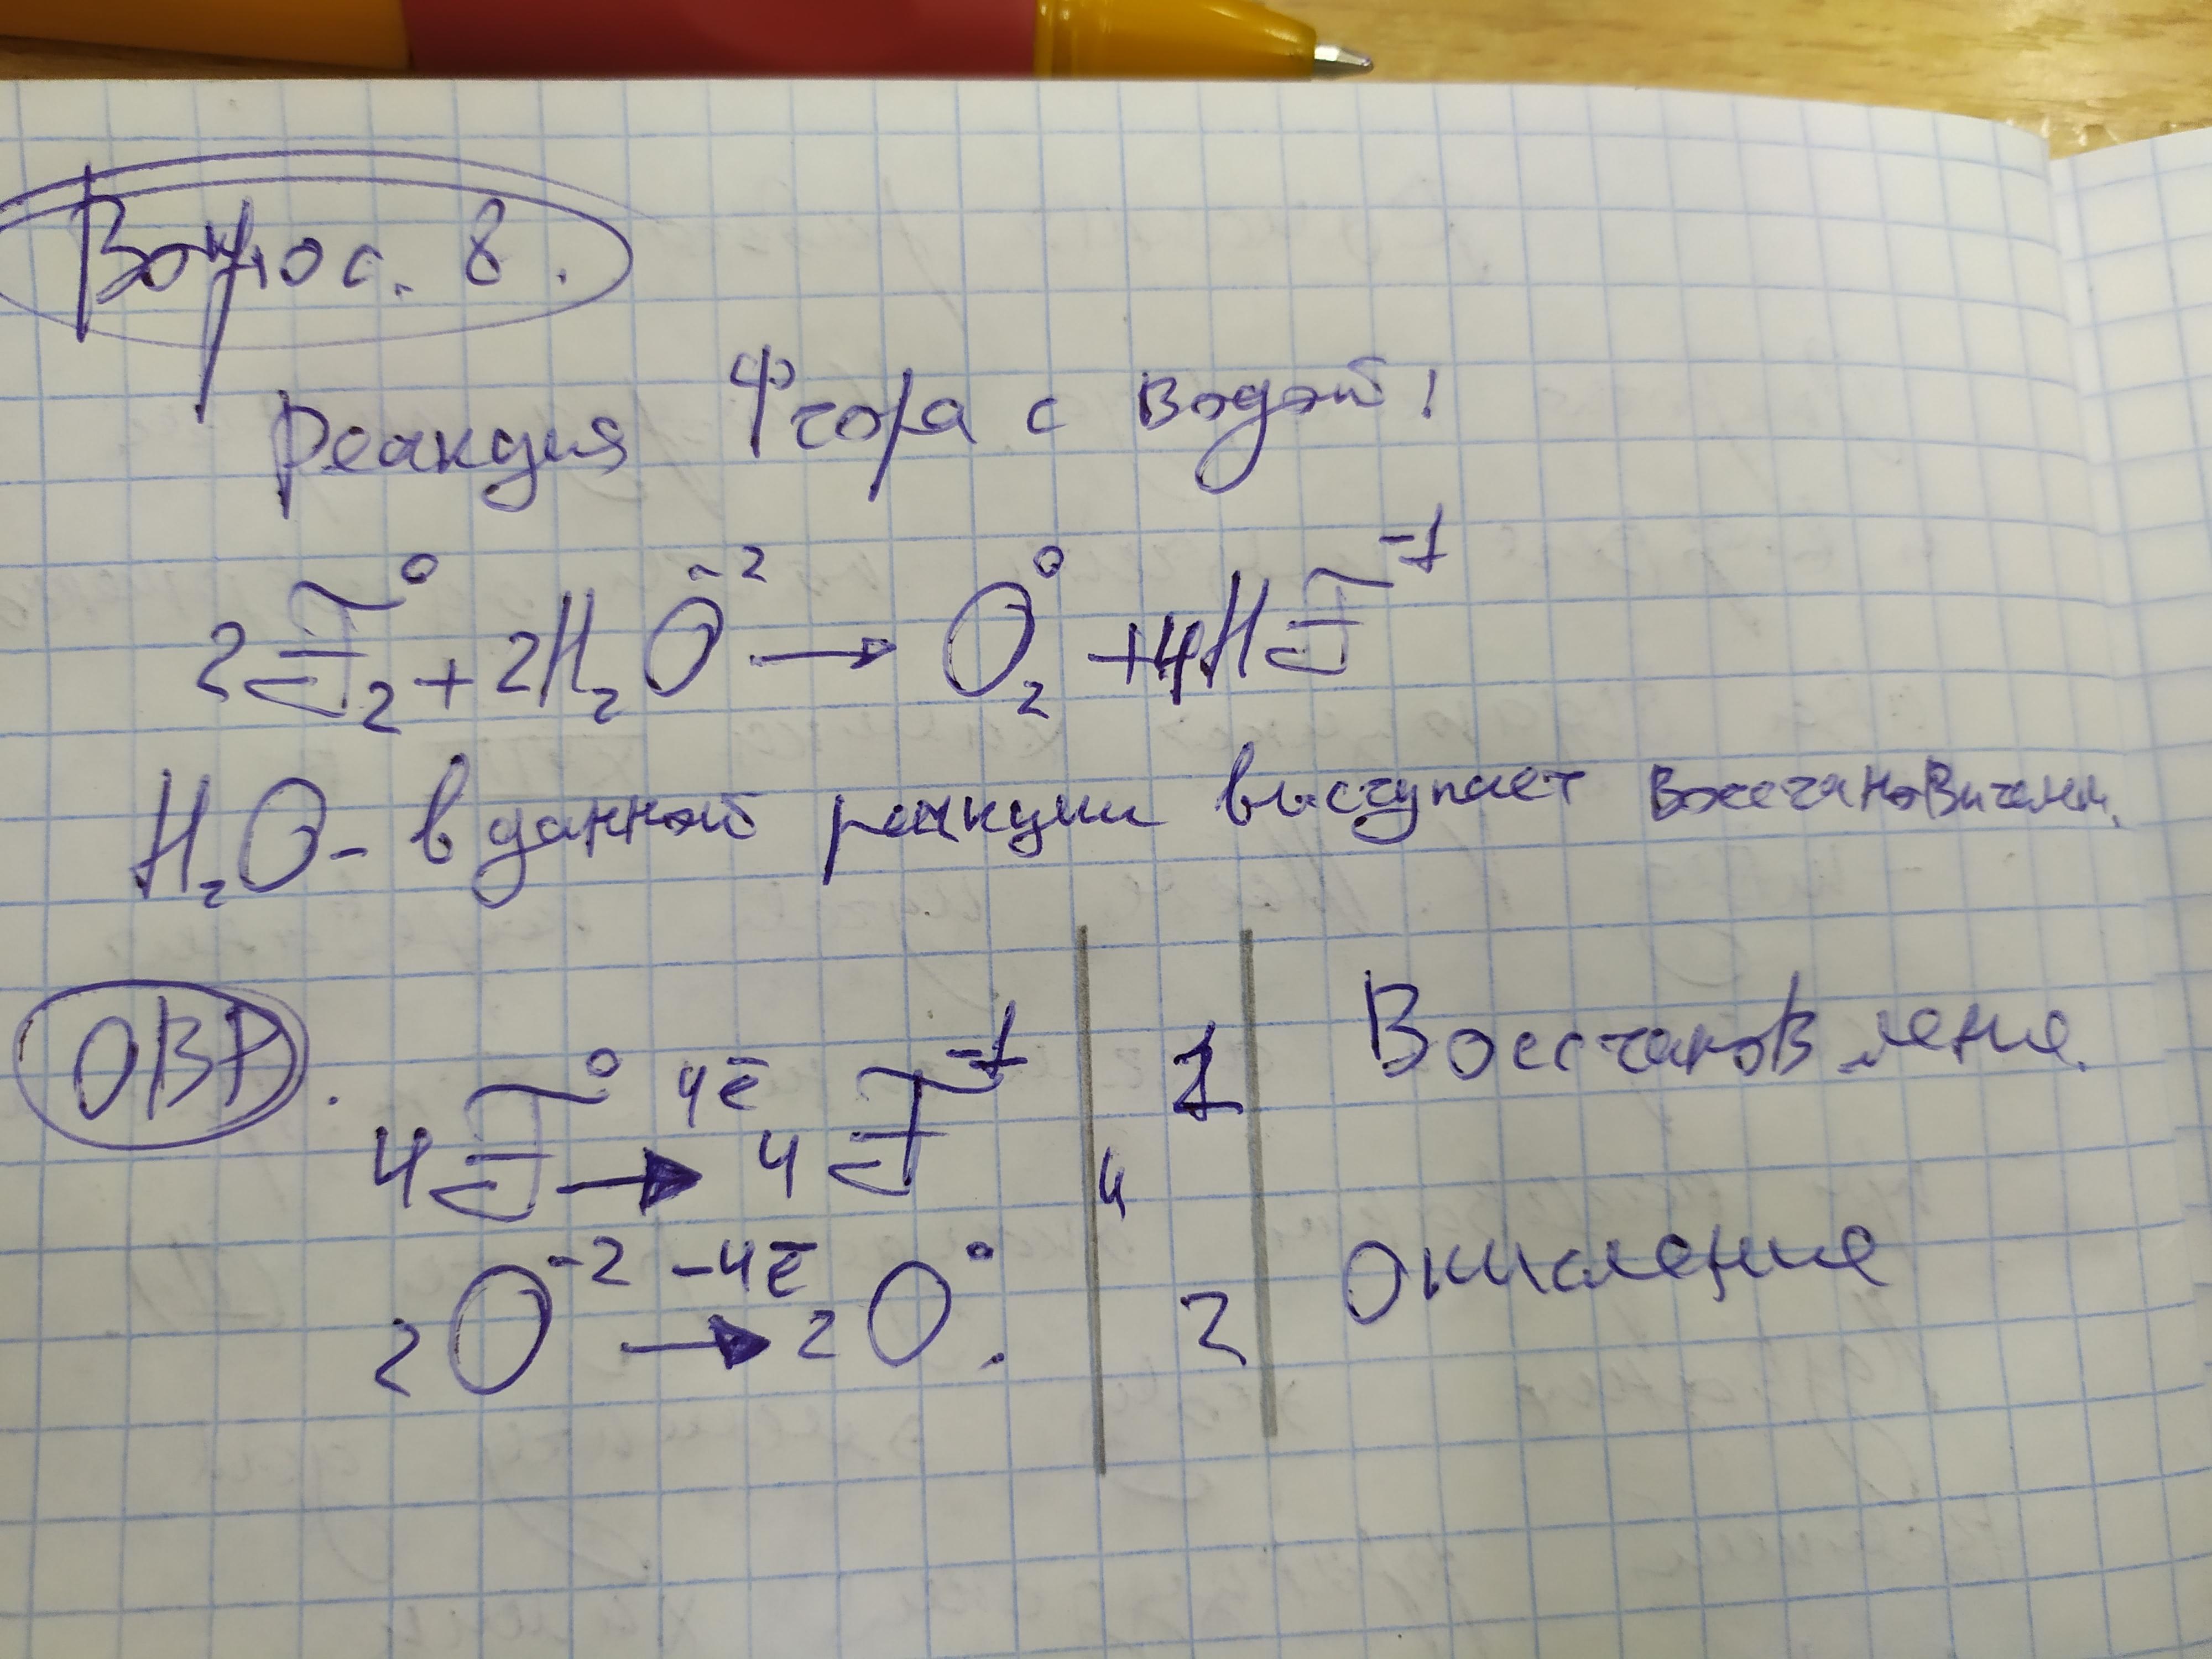 Вопрос. 8.
Реакция Фтора с водой!
2F₂⁰ + 2H₂O⁻² → O₂⁰ + 4HF⁻¹
H₂O - в данной реакции выступает восстановителем.
ОВР.
4F⁰ 4ē → 4F⁻¹ | 1 | Восстановление.
4
2O⁻² -4ē → 2O⁰. | 2 | окисление